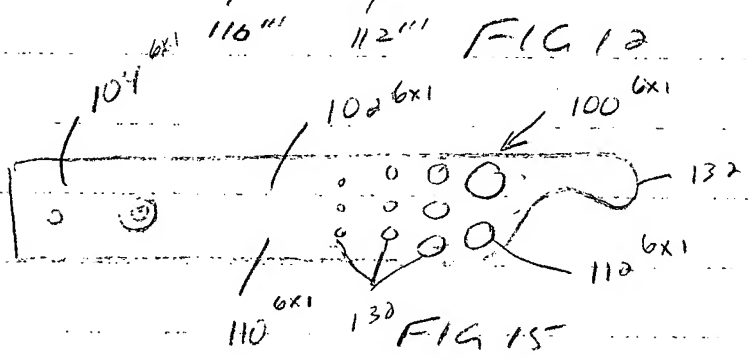 116''' 112''' FIG 12
104^6x1 102^6x1 100^6x1
132
112^6x1
110^6x1 130 FIG 15